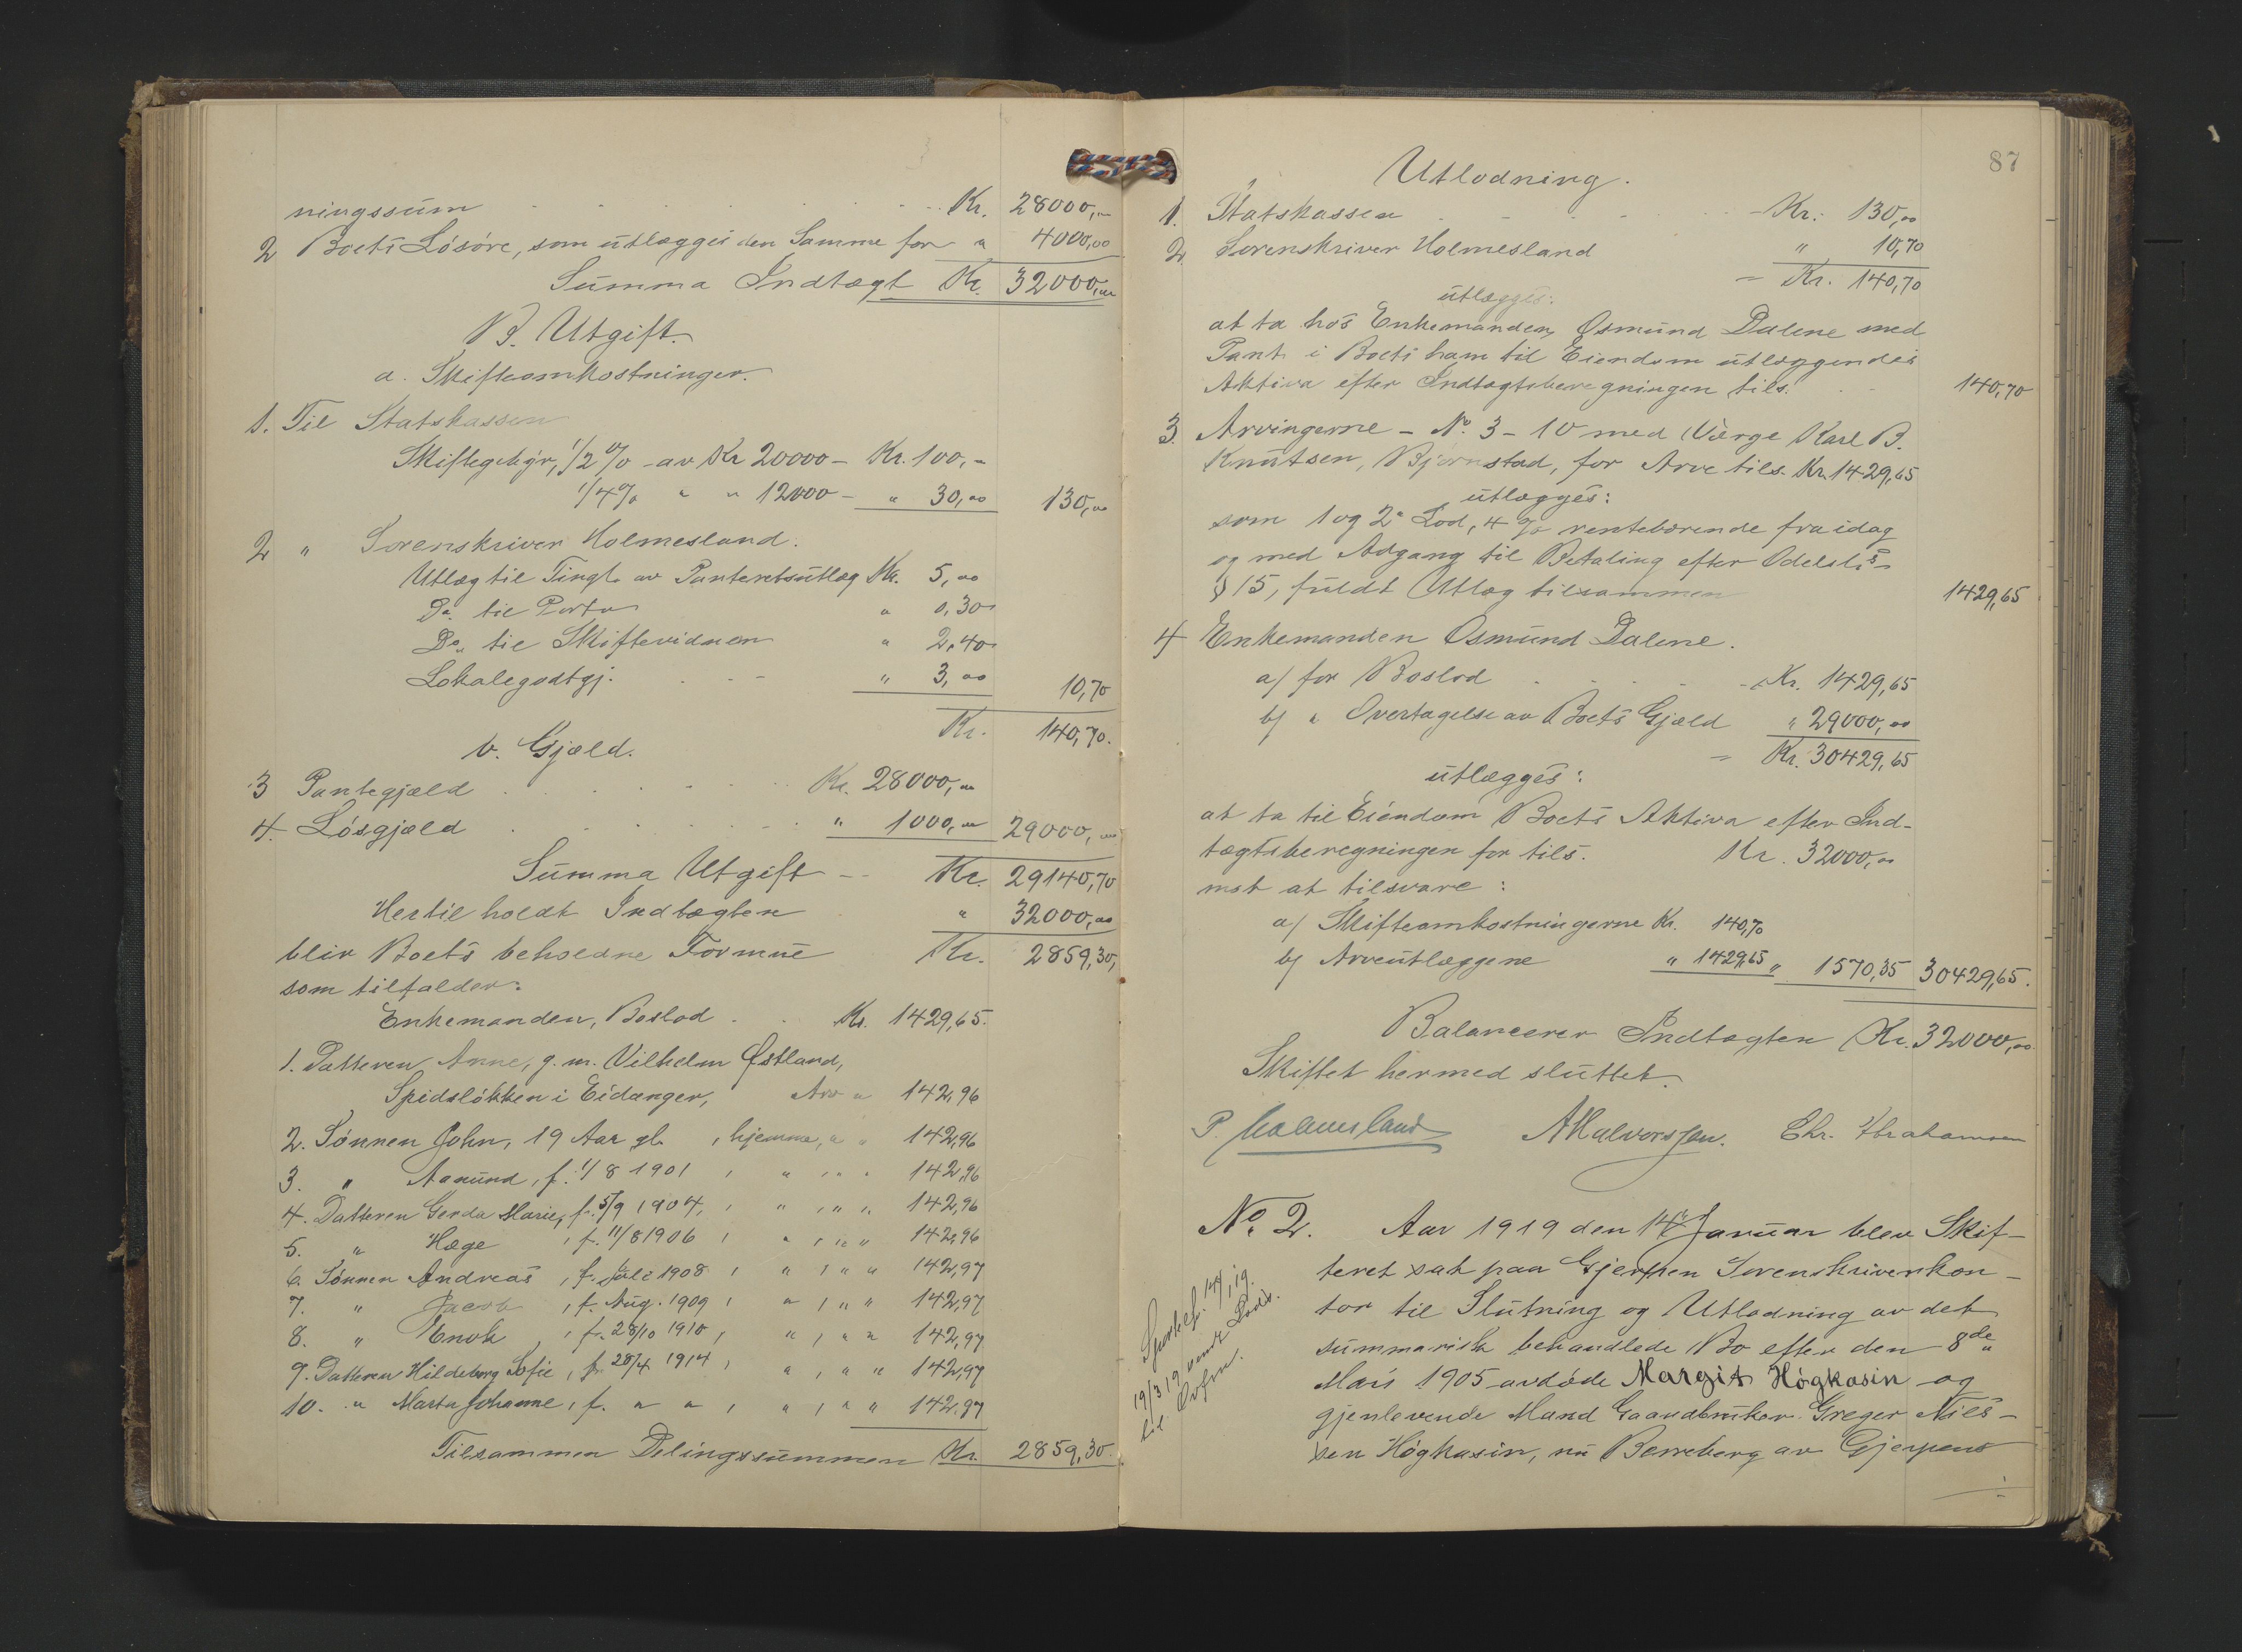 ningssum Kr. 28000,00
2 Boets Løsøre, som utlægges den Samme for " 4000,00
Summa Indtægt Kr. 32000,00
B. Utgift.
a. Skifteomkostninger.
1. Til Statskassen
Skiftegebyr, 1/2 % av Kr 20000 - Kr. 100,-
1/4 % " " 12000 - " 30,00 130,00
2 " Sorenskriver Holmesland.
Utlæg til Tingl. av Panteretsutlæg Kr. 5,00
Do. til Porto " 0,30
Do. til Skiftevidnen " 2,40
Lokalegodtgj. " 3,00 10,70
Kr. 140,70.
b. Gjæld.
3 Pantegjæld Kr. 28000,00
4. Løsgjæld " 1000,00 29000,00
Summa Utgift - Kr. 29140,70
Hertil holdt Indtægten " 32000,00
blir Boets beholdne Formue Kr. 2859,30,
som tilfalder:
Enkemanden, Boslod Kr. 1429,65.
1. Datteren Anne, g. m. Vilhelm Østland,
Spidsløkken i Eidanger, Arv " 142,96
2. Sønnen John, 19 Aar gl. , hjemme, " " 142,96
3. " Aanund, f. 1/8 1901 , " , " " 142,96
4. Datteren Gerda Marie, f. 5/9 1904, , " , " " 142,96
5. " Hæge , f. 11/8 1906 , " , " " 142,96
6. Sønnen Andreas , f. Juli 1908 , " , " " 142,97
7. " Jacob , f. Aug. 1909 , " , " " 142,97
8. " Enok , f. 28/10 1910 , " , " " 142,97
9. Datteren Hildeborg Sofie , f. 28/4 1914 , " , " " 142,97
10. " Marta Johanne , f. " " , " , " " 142,97
Tilsammen Delingssummen Kr. 2859,30.
87
Utlodning.
1. Statskassen Kr. 130,00
2 Sorenskriver Holmesland " 10,70
- Kr. 140,70
utlægges:
at ta hos Enkemanden Osmund Dalene med
Pant i Boets ham til Eiendom utlæggendes
Aktiva efter Indtægtsberegningen tils. 140,70
3. Arvingerne - No. 3 - 10 med Værge Karl B.
Knutsen, Bjørnstad, for Arv tils. Kr. 1429,65
utlægges:
som 1 og 2 Lod, 4 % rentebærende fra idag
og med Adgang til Betaling efter Odelsl.s
§ 15, fuldt Utlæg tilsammen 1429,65
4 Enkemanden Osmund Dalene.
a/ for Boslod Kr. 1429,65
b/ " Overtagelse av Boets Gjæld " 29000,00
- Kr. 30429,65
utlægges:
at ta til Eiendom Boets Aktiva efter Ind-
tægtsberegningen for tils. Kr. 32000,00
mot at tilsvare :
a/ Skifteomkostningerne Kr. 140,70
b/ Arveutlæggene " 1429,65 " 1570,35 30429,65.
Balancerer Indtægten Kr. 32000,00
Skiftet hermed sluttet.
P. Holmesland A Halvorsen. Chr. Abrahamsen
No. 2. Aar 1919 den 14. Januar blev Skif-
teret sat paa Gjerpen Sorenskriverkon-
tor til Slutning og Utlodning av det
summarisk behandlede Bo efter den 8de
Mars 1905 avdøde Margit Høgkasin og
gjenlevende Mand Gaardbruker Greger Niels-
sen Høgkasin, nu Berreberg av Gjerpens
14/1 19.
19/3 19 sendt
til